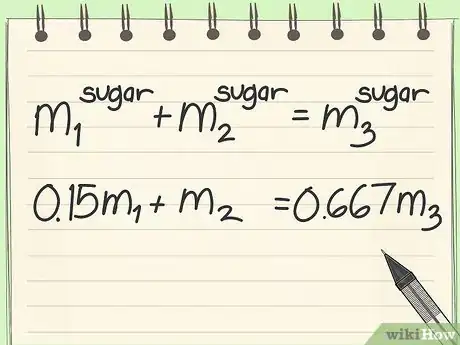 m₁ˢᵘᵍᵃʳ + m₂ˢᵘᵍᵃʳ = m₃ˢᵘᵍᵃʳ
0.15m₁ + m₂ = 0.667m₃
wikiHow